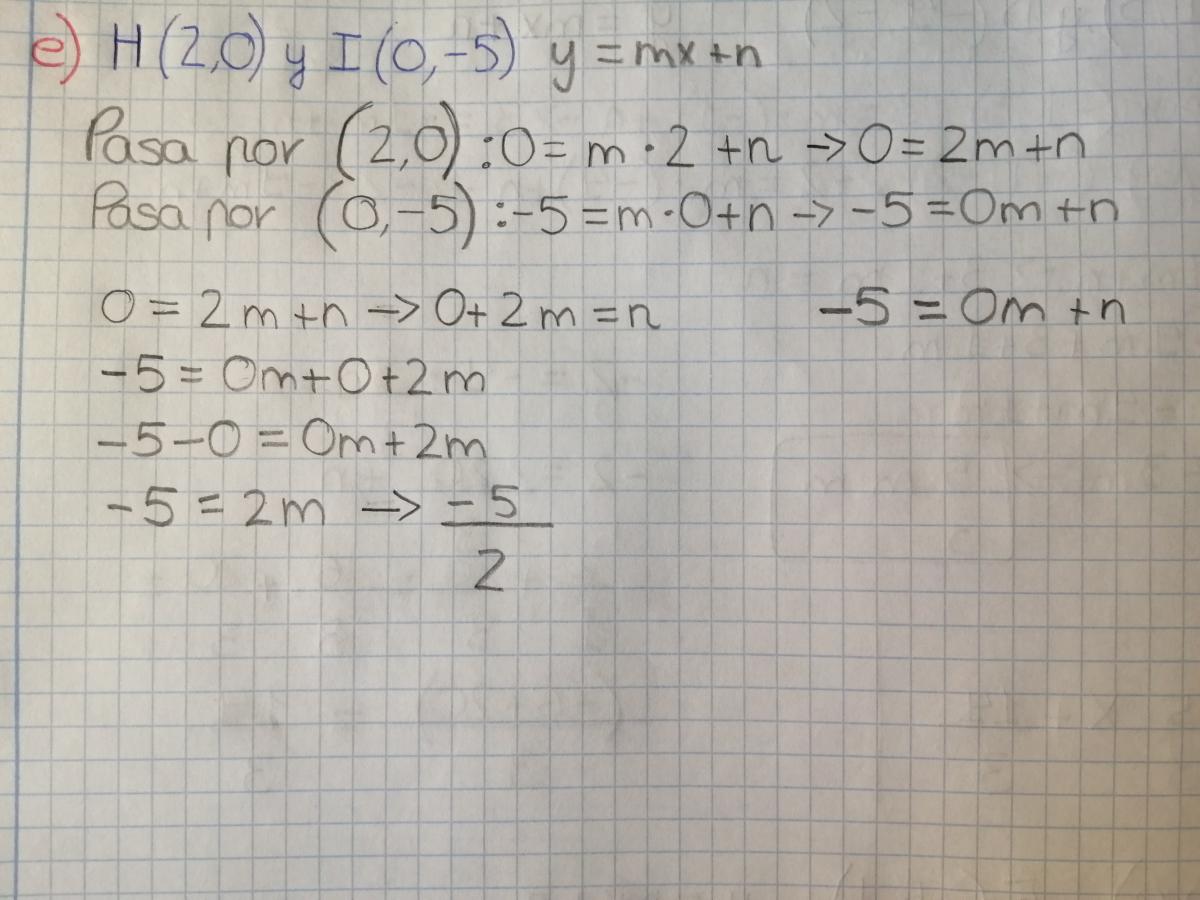 e) H(2,0) y I(0,-5) y=mx+n
Pasa por (2,0):0=m·2+n→0=2m+n
Pasa por (0,-5):-5=m·0+n→-5=0m+n
0=2m+n→0+2m=n -5=0m+n
-5=0m+0+2m
-5-0=0m+2m
-5=2m→-5
2